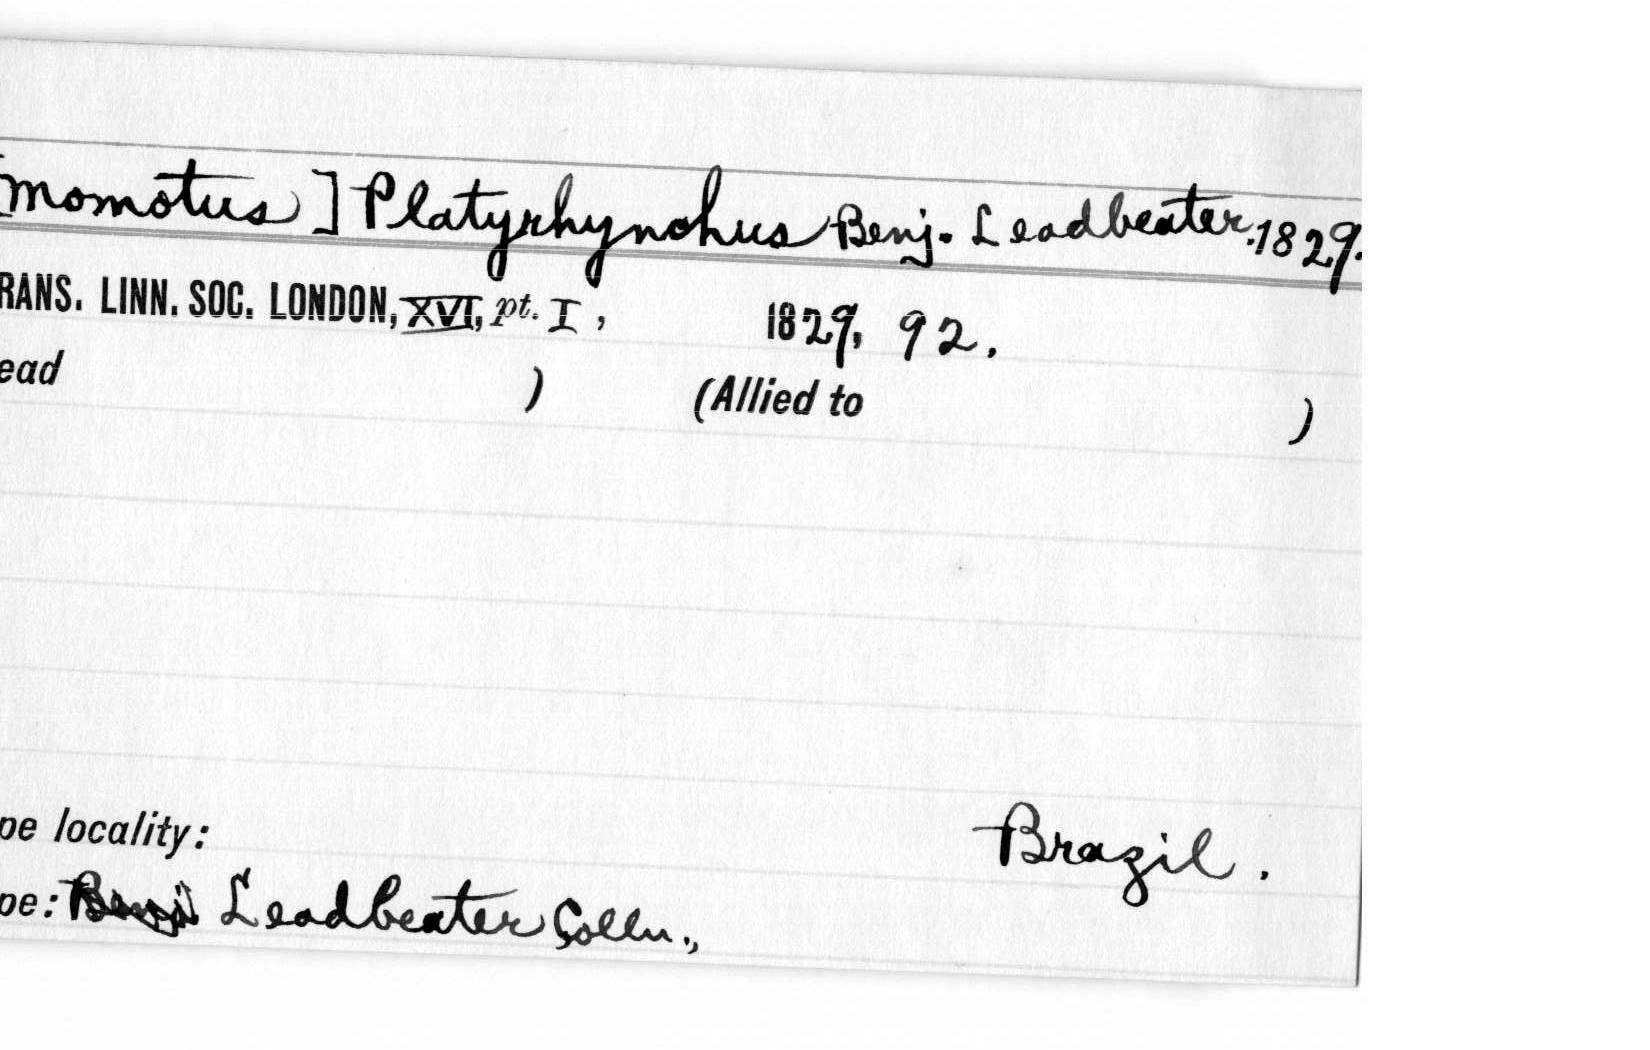 [Momotus] Platyrhynchus Benj. Leadbeater. 1829.
RANS. LINN. SOC. LONDON, XVI, pt. I, 1829, 92.
ead ) (Allied to )
pe locality: Brazil.
pe: Benj. Leadbeater Colln.,